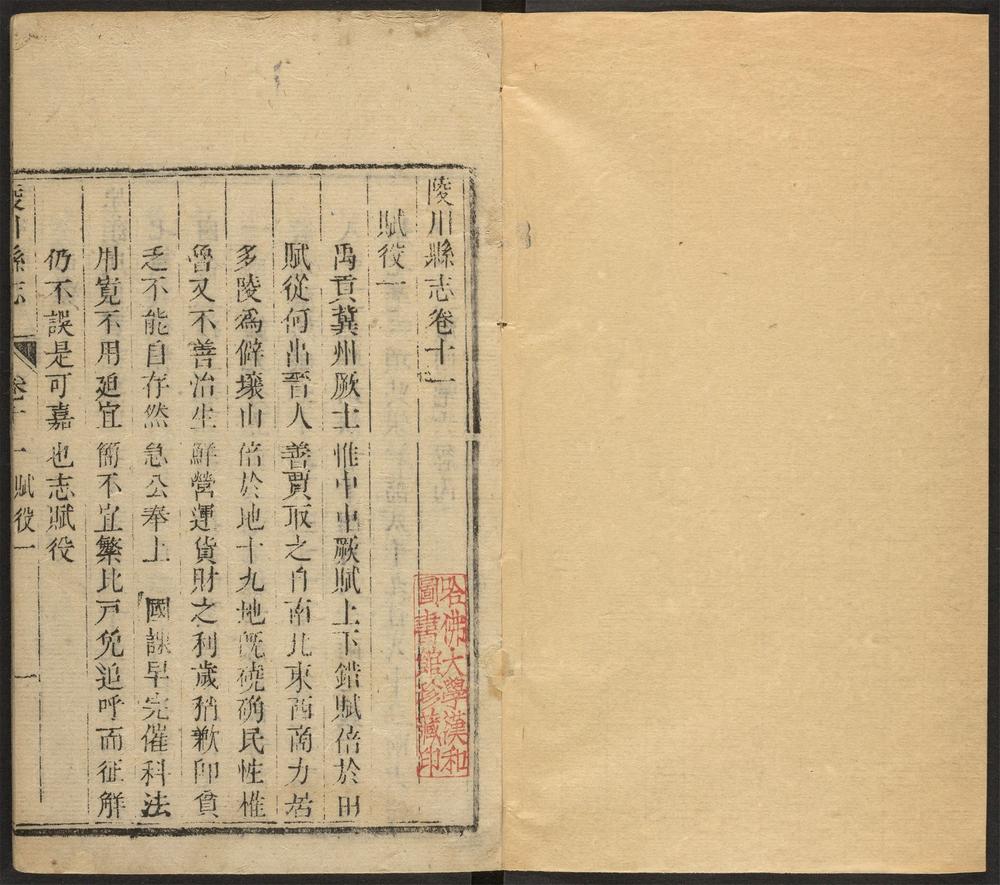 陵川縣志卷十一
賦役一
禹貢冀州厥土惟中中厥賦上下錯賦倍於田
賦從何出晋人善賈取之自南北東西商力居
多陵爲僻壤山倍於地十九地既磽确民性椎
魯又不善治生鮮營運貨財之利歲稍歉卽貧
乏不能自存然急公奉上 國課早完催科法
用寬不用廹宜簡不宜繁比戸免追呼而征觧
仍不誤是可嘉也志賦役
陵川縣志 卷十一 賦役一 一
哈佛大學漢和
圖書館珍藏印